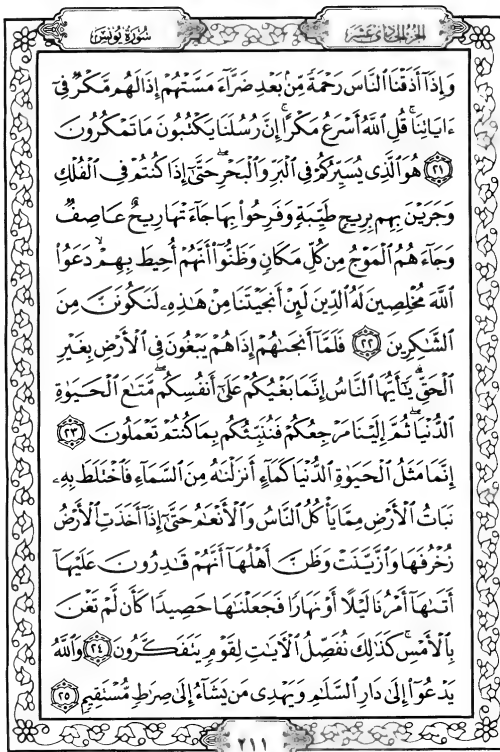 سُورَةُ يُونُسَ
الجُزْءُ الحَادِي عَشَرَ
وَإِذَآ أَذَقْنَا ٱلنَّاسَ رَحْمَةً مِّنۢ بَعْدِ ضَرَّآءَ مَسَّتْهُمْ إِذَا لَهُم مَّكْرٌ فِىٓ
ءَايَاتِنَا ۚ قُلِ ٱللَّهُ أَسْرَعُ مَكْرًا ۚ إِنَّ رُسُلَنَا يَكْتُبُونَ مَا تَمْكُرُونَ
﴿٢١﴾ هُوَ ٱلَّذِى يُسَيِّرُكُمْ فِى ٱلْبَرِّ وَٱلْبَحْرِ ۖ حَتَّىٰٓ إِذَا كُنتُمْ فِى ٱلْفُلْكِ
وَجَرَيْنَ بِهِم بِرِيحٍ طَيِّبَةٍ وَفَرِحُوا۟ بِهَا جَآءَتْهَا رِيحٌ عَاصِفٌ
وَجَآءَهُمُ ٱلْمَوْجُ مِن كُلِّ مَكَانٍ وَظَنُّوٓا۟ أَنَّهُمْ أُحِيطَ بِهِمْ ۙ دَعَوُا۟
ٱللَّهَ مُخْلِصِينَ لَهُ ٱلدِّينَ لَئِنْ أَنجَيْتَنَا مِنْ هَـٰذِهِۦ لَنَكُونَنَّ مِنَ
ٱلشَّـٰكِرِينَ ﴿٢٢﴾ فَلَمَّآ أَنجَىٰهُمْ إِذَا هُمْ يَبْغُونَ فِى ٱلْأَرْضِ بِغَيْرِ
ٱلْحَقِّ ۗ يَـٰٓأَيُّهَا ٱلنَّاسُ إِنَّمَا بَغْيُكُمْ عَلَىٰٓ أَنفُسِكُم ۖ مَّتَـٰعَ ٱلْحَيَوٰةِ
ٱلدُّنْيَا ۖ ثُمَّ إِلَيْنَا مَرْجِعُكُمْ فَنُنَبِّئُكُم بِمَا كُنتُمْ تَعْمَلُونَ ﴿٢٣﴾
إِنَّمَا مَثَلُ ٱلْحَيَوٰةِ ٱلدُّنْيَا كَمَآءٍ أَنزَلْنَـٰهُ مِنَ ٱلسَّمَآءِ فَٱخْتَلَطَ بِهِۦ
نَبَاتُ ٱلْأَرْضِ مِمَّا يَأْكُلُ ٱلنَّاسُ وَٱلْأَنْعَـٰمُ حَتَّىٰٓ إِذَآ أَخَذَتِ ٱلْأَرْضُ
زُخْرُفَهَا وَٱزَّيَّنَتْ وَظَنَّ أَهْلُهَآ أَنَّهُمْ قَـٰدِرُونَ عَلَيْهَآ
أَتَىٰهَآ أَمْرُنَا لَيْلًا أَوْ نَهَارًا فَجَعَلْنَـٰهَا حَصِيدًا كَأَن لَّمْ تَغْنَ
بِٱلْأَمْسِ ۚ كَذَٰلِكَ نُفَصِّلُ ٱلْـَٔايَـٰتِ لِقَوْمٍ يَتَفَكَّرُونَ ﴿٢٤﴾ وَٱللَّهُ
يَدْعُوٓا۟ إِلَىٰ دَارِ ٱلسَّلَـٰمِ وَيَهْدِى مَن يَشَآءُ إِلَىٰ صِرَٰطٍ مُّسْتَقِيمٍ ﴿٢٥﴾
٢١١